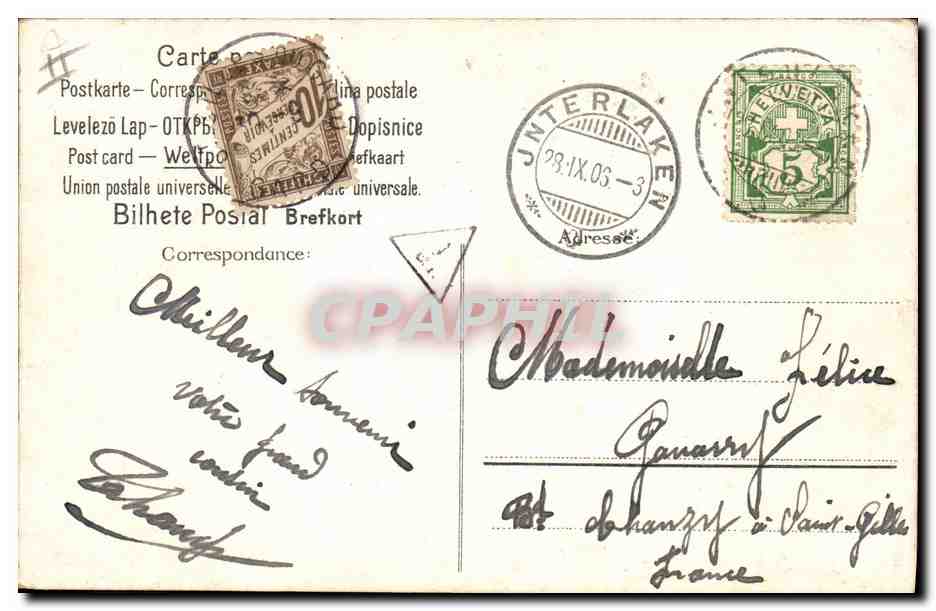 Carte
Postkarte – Corresp lina postale
Levelező Lap – ОТКРЫ Dopisnice
Post card – Weltpo Briefkaart
Union postale universelle universale.
Bilhete Postal Brefkort
Correspondance:
10
CENTIMES
À PERCEVOIR
JNTERLAKEN
28.IX.06.–3
Adresse:
HELVETIA
5
CPAPHIL
Meilleur souvenir
votre grand
cousin
Mademoiselle Félice
Bd Chanzy à Saint-Gilles
France